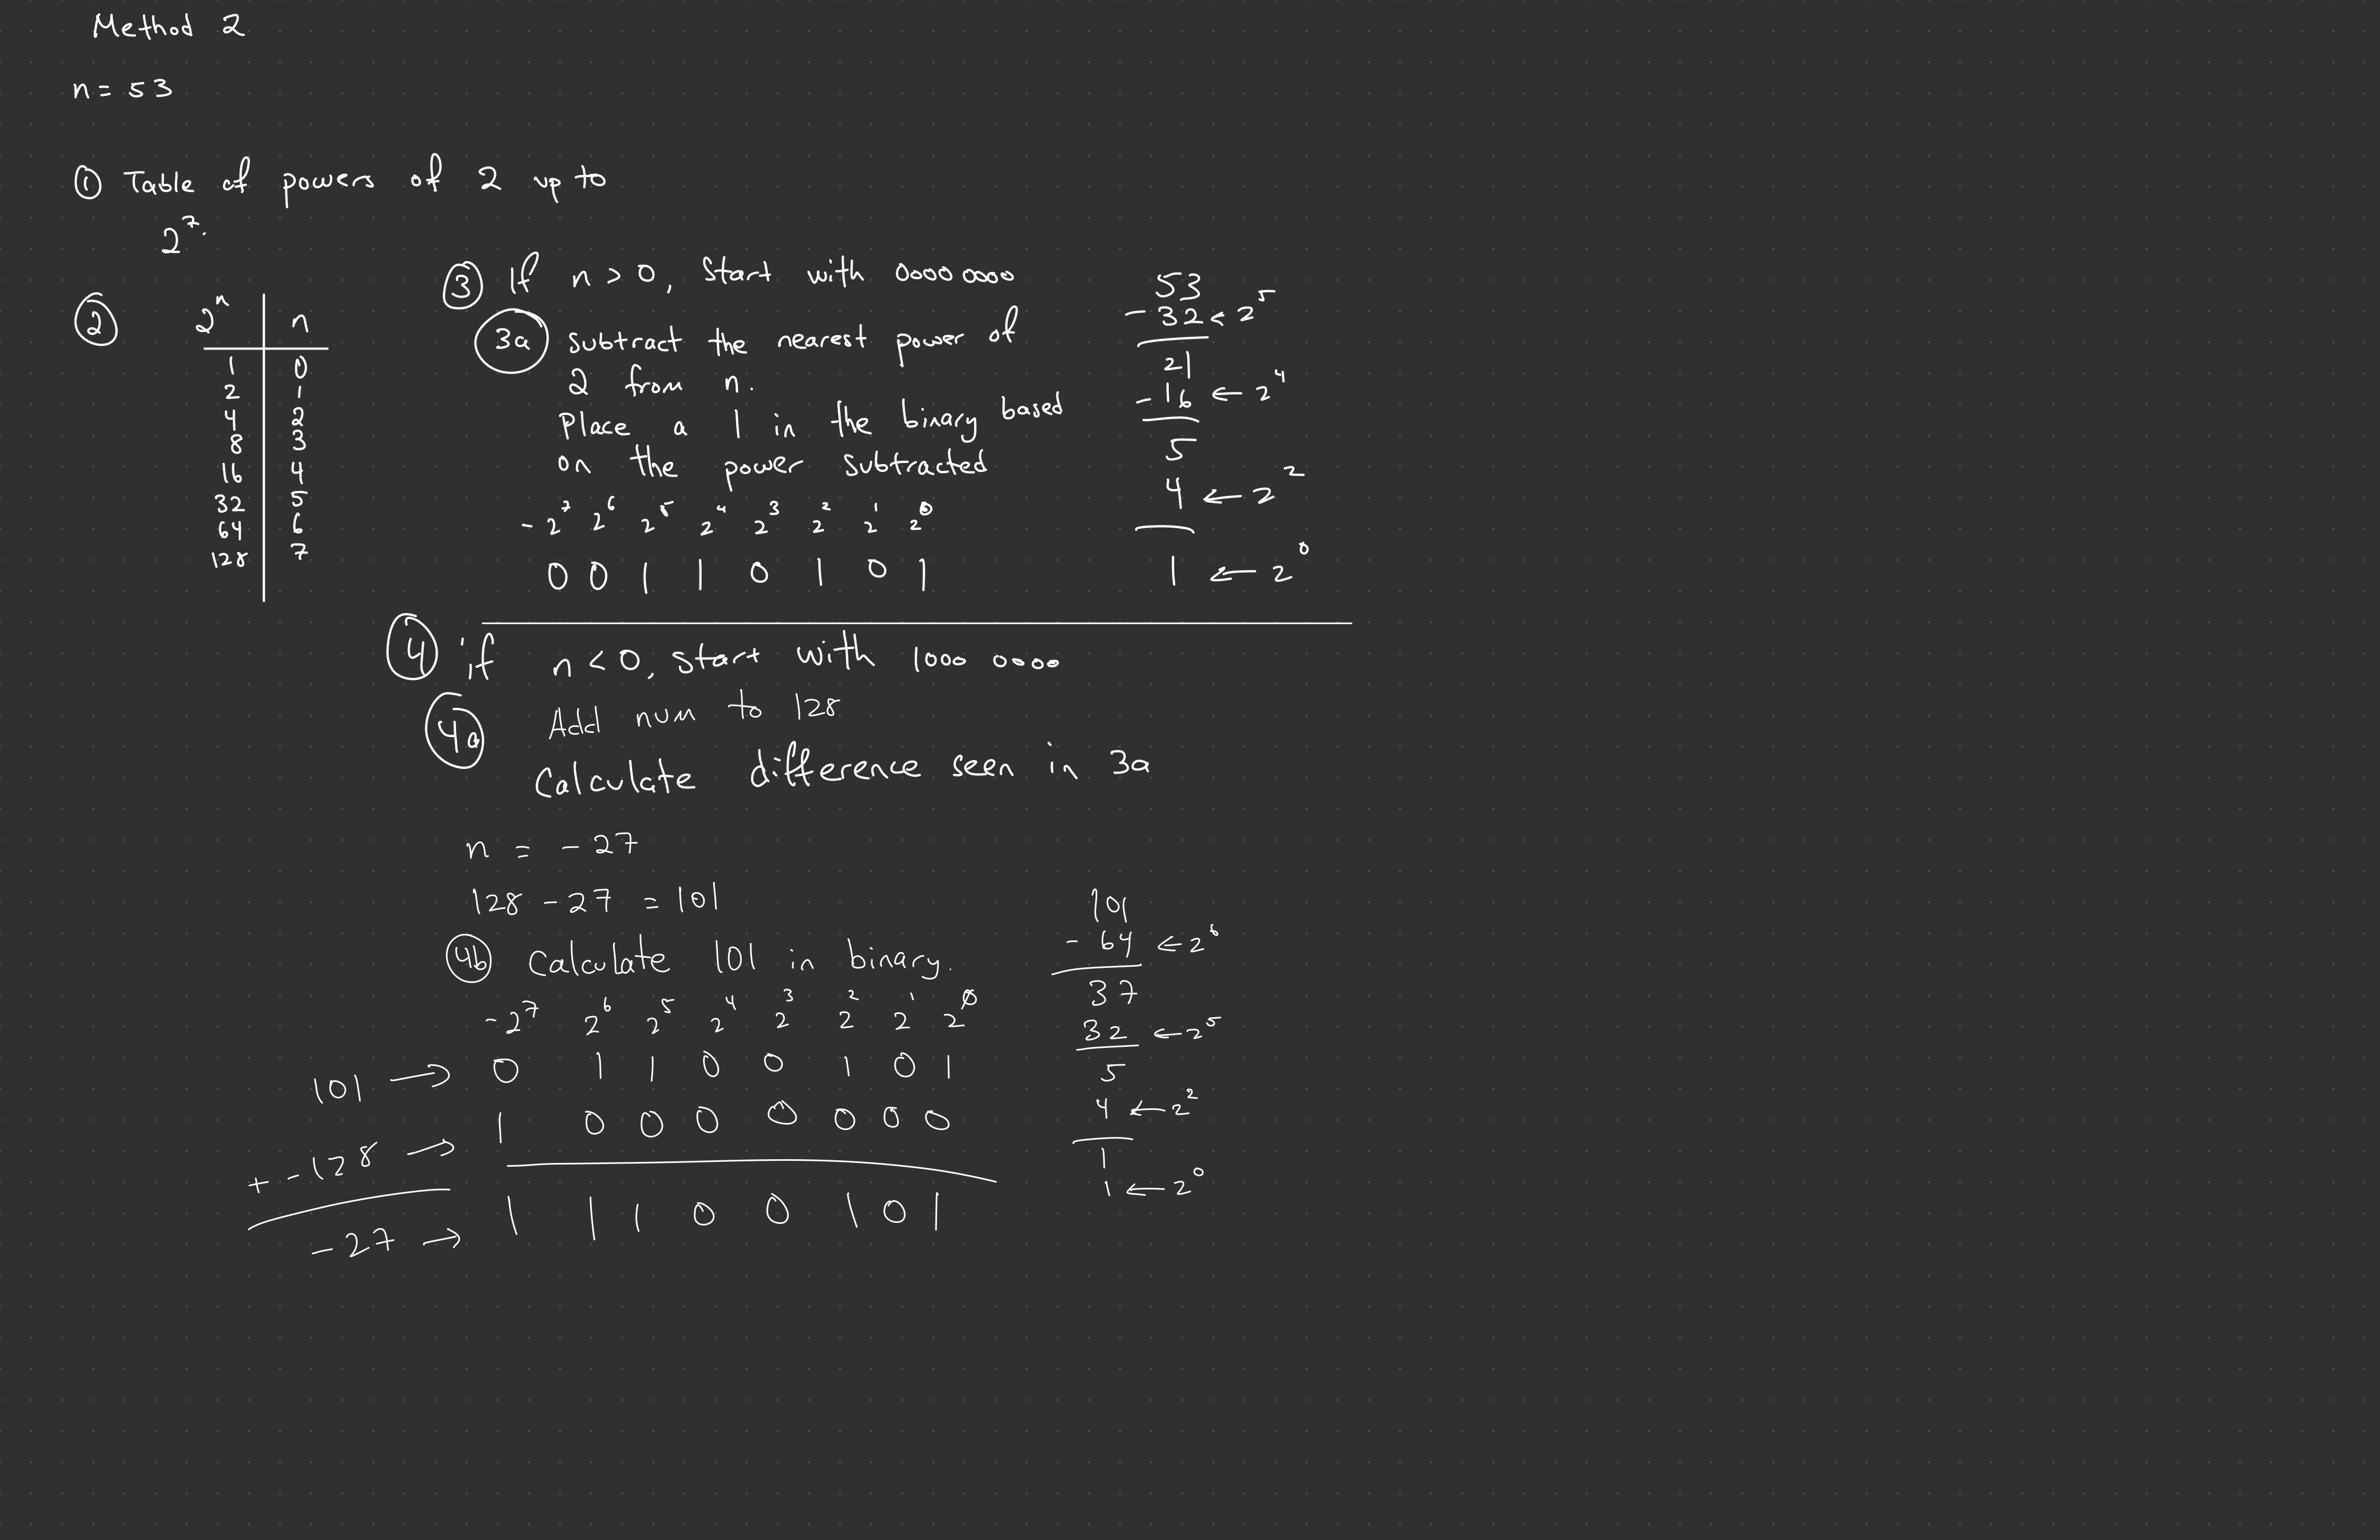 Method 2
n = 53
① Table of powers of 2 up to
2⁷.
② 2ⁿ | n
1 | 0
2 | 1
4 | 2
8 | 3
16 | 4
32 | 5
64 | 6
128 | 7
③ If n > 0, start with 0000 0000
3a subtract the nearest power of
2 from n.
Place a 1 in the binary based
on the power subtracted
-2⁷ 2⁶ 2⁵ 2⁴ 2³ 2² 2¹ 2⁰
0 0 1 1 0 1 0 1
53
- 32 ← 2⁵
21
- 16 ← 2⁴
5
4 ← 2²
1 ← 2⁰
④ if n < 0, start with 1000 0000
4a Add num to 128
Calculate difference seen in 3a
n = -27
128 - 27 = 101
4b Calculate 101 in binary.
-2⁷ 2⁶ 2⁵ 2⁴ 2³ 2² 2¹ 2⁰
101 → 0 1 1 0 0 1 0 1
+ -128 → 1 0 0 0 0 0 0 0
-27 → 1 1 1 0 0 1 0 1
101
- 64 ← 2⁶
37
32 ← 2⁵
5
4 ← 2²
1
1 ← 2⁰